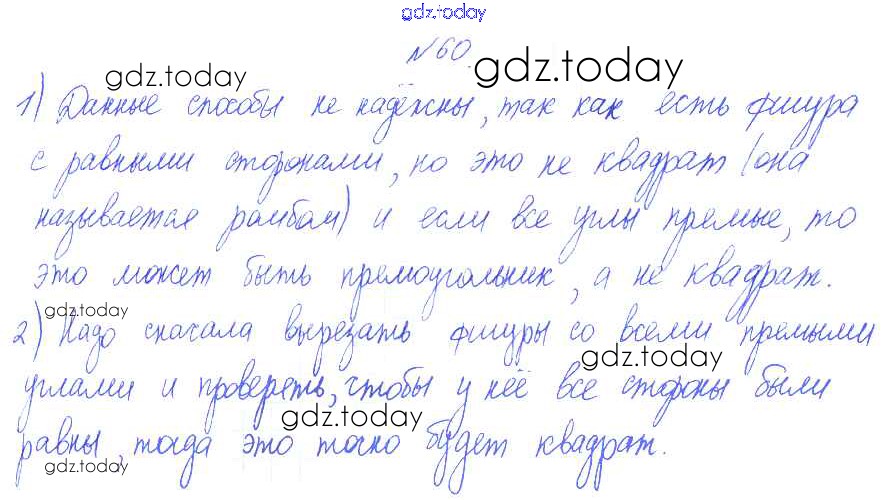 gdz.today
№60
gdz.today gdz.today
1) Данные способы не надёжны, так как есть фигура
с равными сторонами, но это не квадрат (она
называется ромбом) и если все углы прямые, то
это может быть прямоугольник, а не квадрат.
gdz.today
2) Надо сначала вырезать фигуры со всеми прямыми
gdz.today
углами и проверять, чтобы у неё все стороны были
gdz.today
равны, тогда это точно будет квадрат.
gdz.today